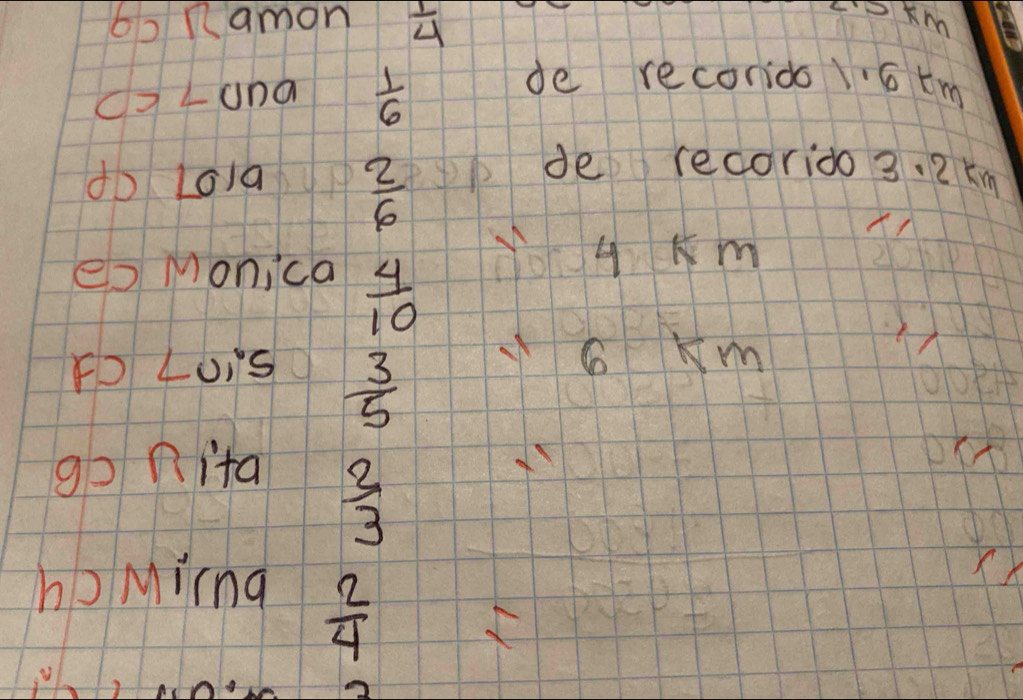 b) Ramon 1/4 de 2.5 km
c) Luna 1/6 de recorido 1.6 km
d) Lola 2/6 de recorido 3.2 km
e) Monica 4/10 " 4 km "
F) Luis 3/5 " 6 km "
g) Rita 2/3 " "
h) Mirna 2/4 " "